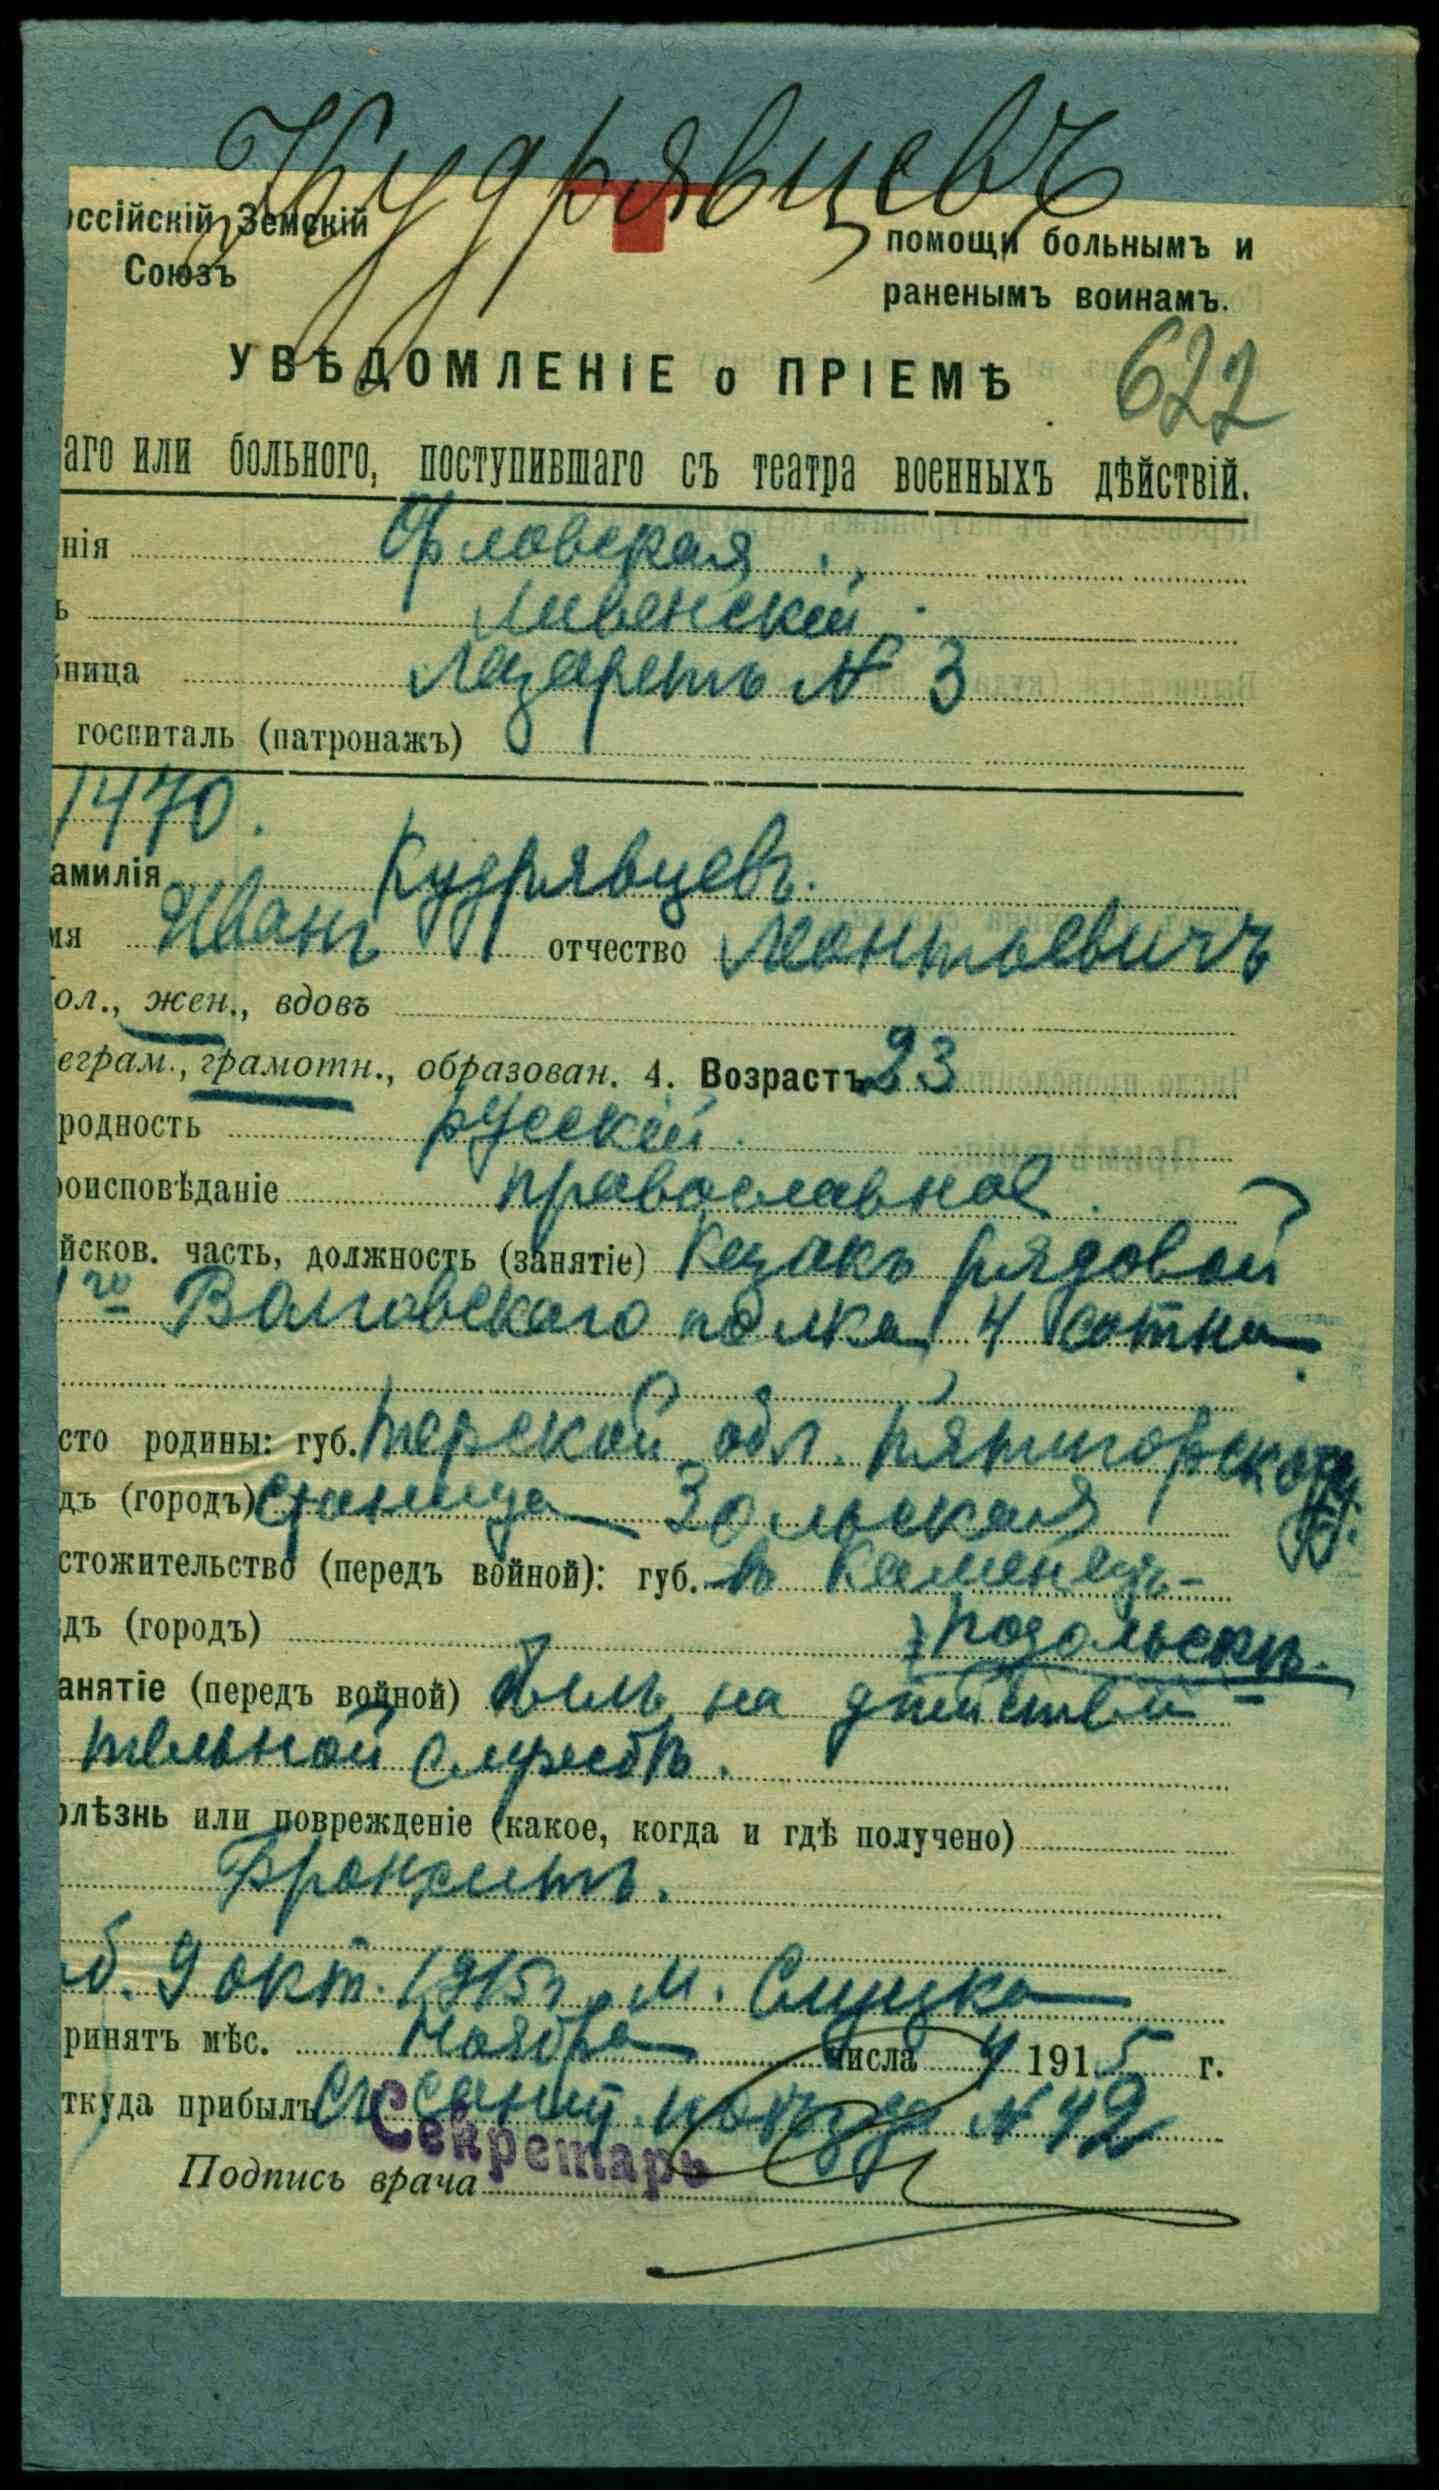 Кудрявцевъ
оссійскій Земскій
Союзъ
помощи больнымъ и
раненымъ воинамъ.
УВѢДОМЛЕНІЕ о ПРІЕМѢ
622
аго или больного, поступившаго съ театра военныхъ дѣйствій.
нія Орловская
ъ Ливенскій
ница Лазаретъ № 3
госпиталь (патронажъ)
1470.
амилія Кудрявцевъ.
мя Иванъ отчество Леонтьевичъ
ол., жен., вдовъ
еграм., грамотн., образован. 4. Возрастъ 23
родность русскій.
роисповѣданіе православное.
йсков. часть, должность (занятіе) Казакъ рядовой
1го Волговскаго полка 4 сотни
сто родины: губ. Терской обл. Пятигорскаго
дъ (городъ) станица Зольская
стожительство (передъ войной): губ. въ Каменецъ-
дъ (городъ) Подольскъ.
анятіе (передъ войной) былъ на дѣйстви-
тельной службѣ.
олѣзнь или поврежденіе (какое, когда и гдѣ получено)
Бронхитъ.
об. 9 окт. 1915г. м. Слуцка
ринятъ мѣс. Ноября числа 4 1915 г.
ткуда прибылъ Съ санит. поѣзда № 42
Секретарь
Подпись врача